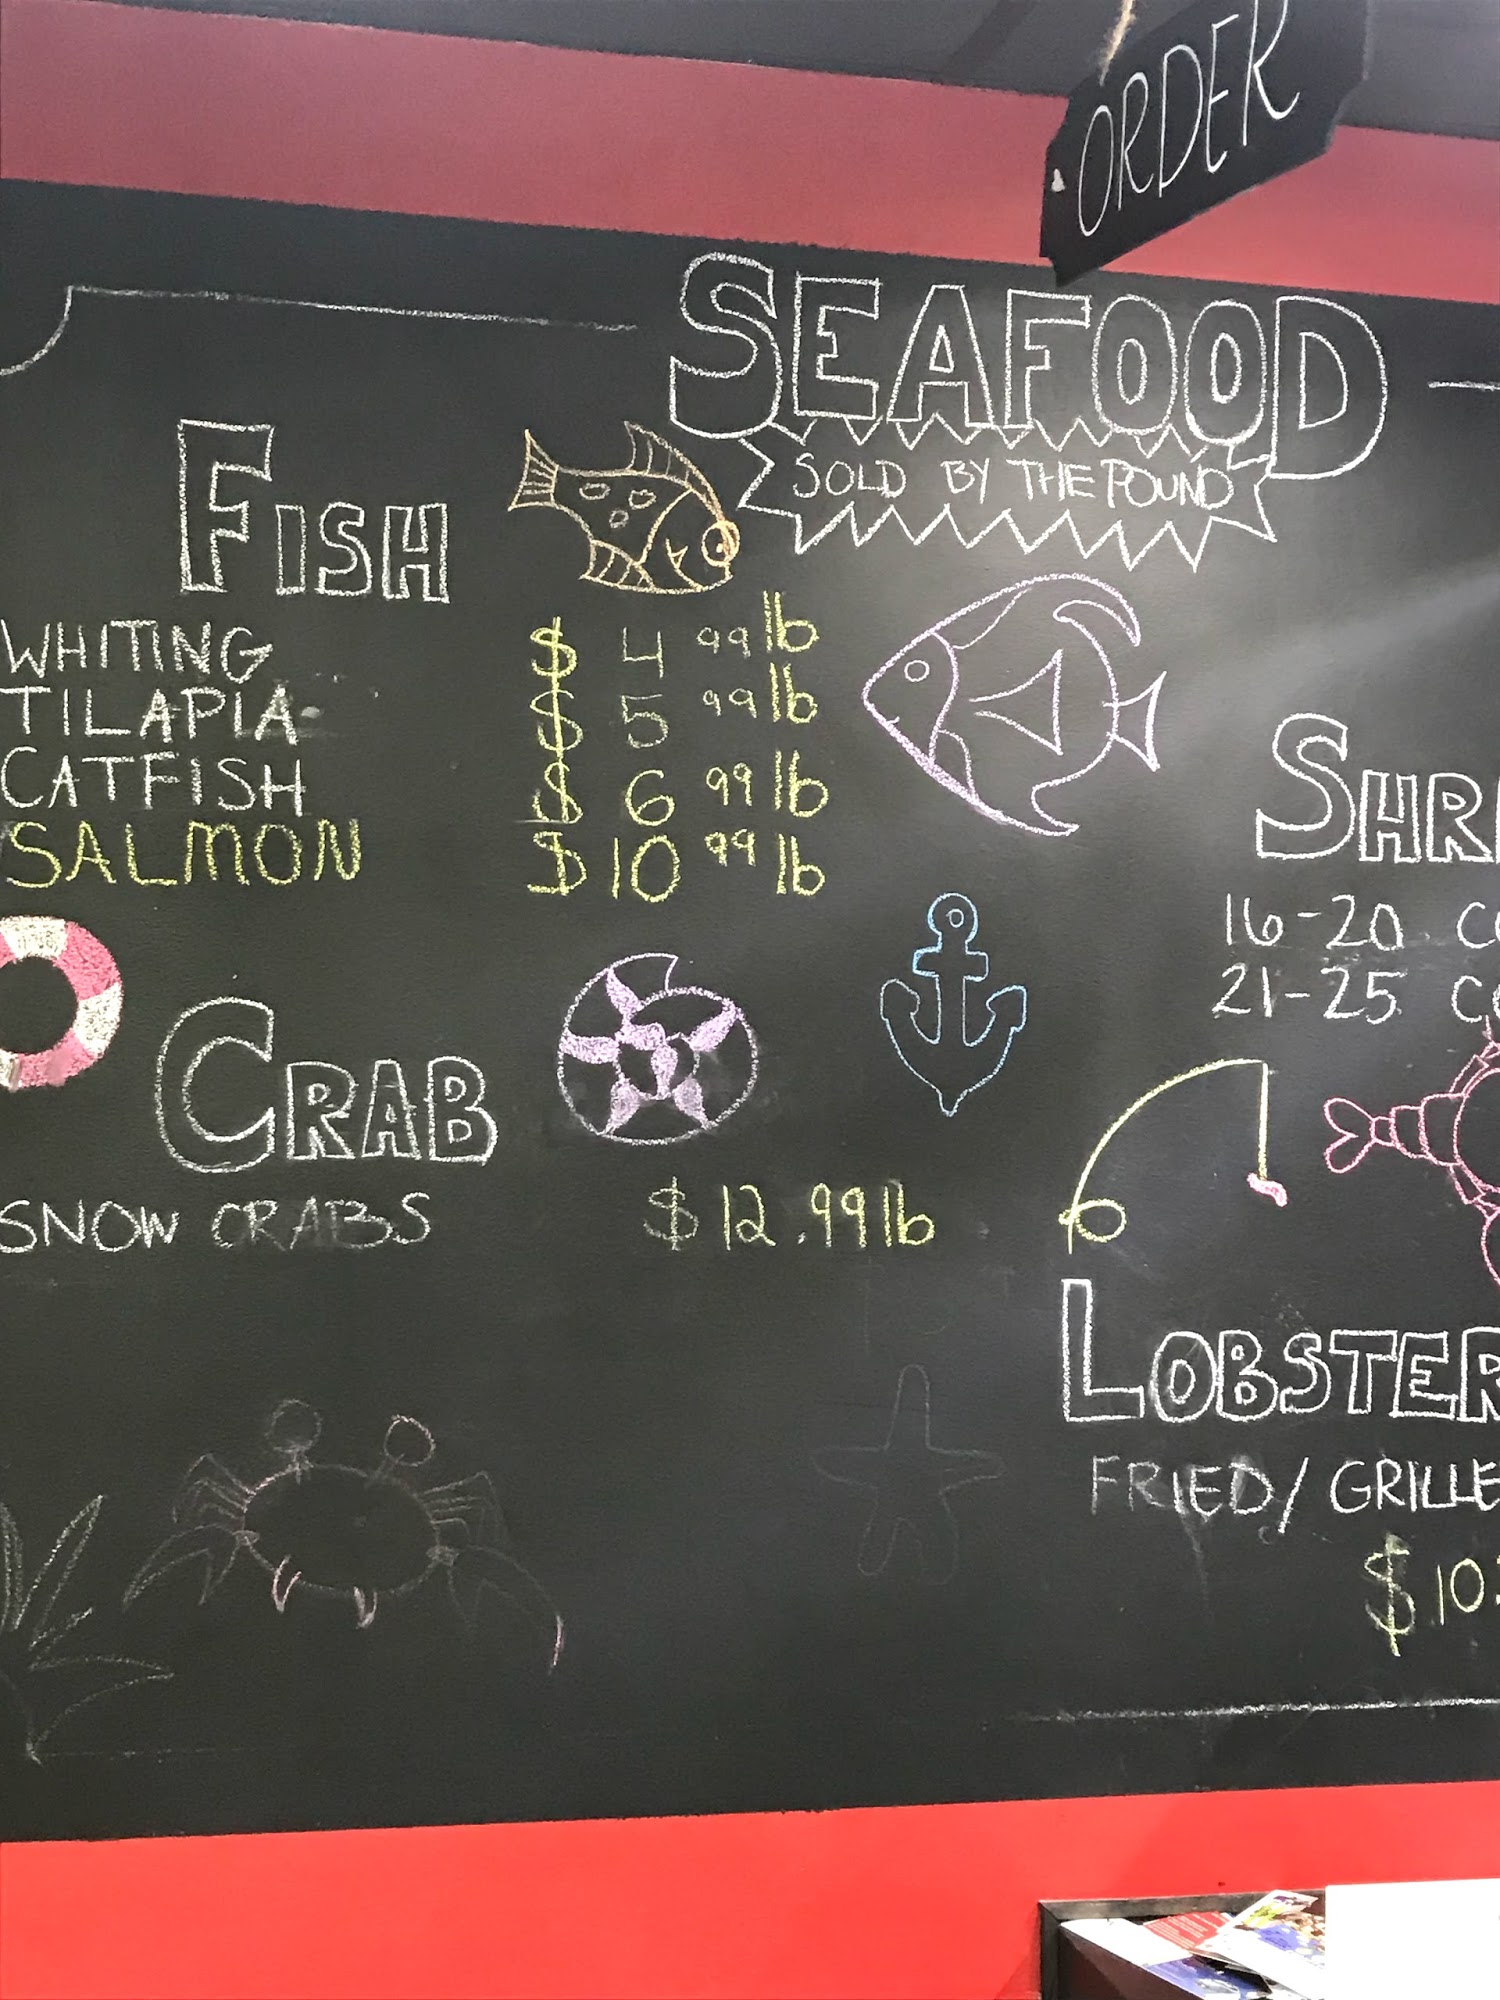 ORDER
SEAFOOD
SOLD BY THE POUND
FISH
WHITING $ 4 99 lb
TILAPIA $ 5 99 lb
CATFISH $ 6 99 lb
SALMON $ 10 99 lb
CRAB
SNOW CRABS $ 12.99 lb
SHRI
16-20 CO
21-25 CO
LOBSTER
FRIED / GRILLE
$ 10.